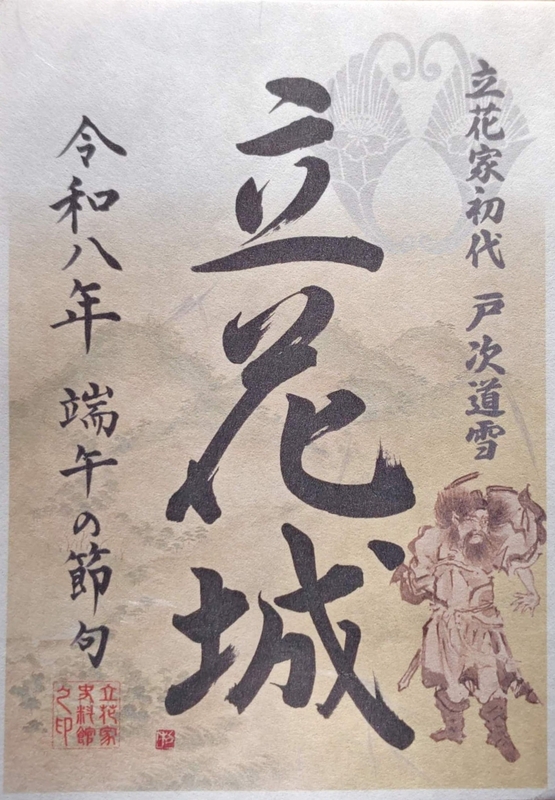 立花家初代 戸次道雪
立花城
令和八年 端午の節句
立花家
史料館
之印